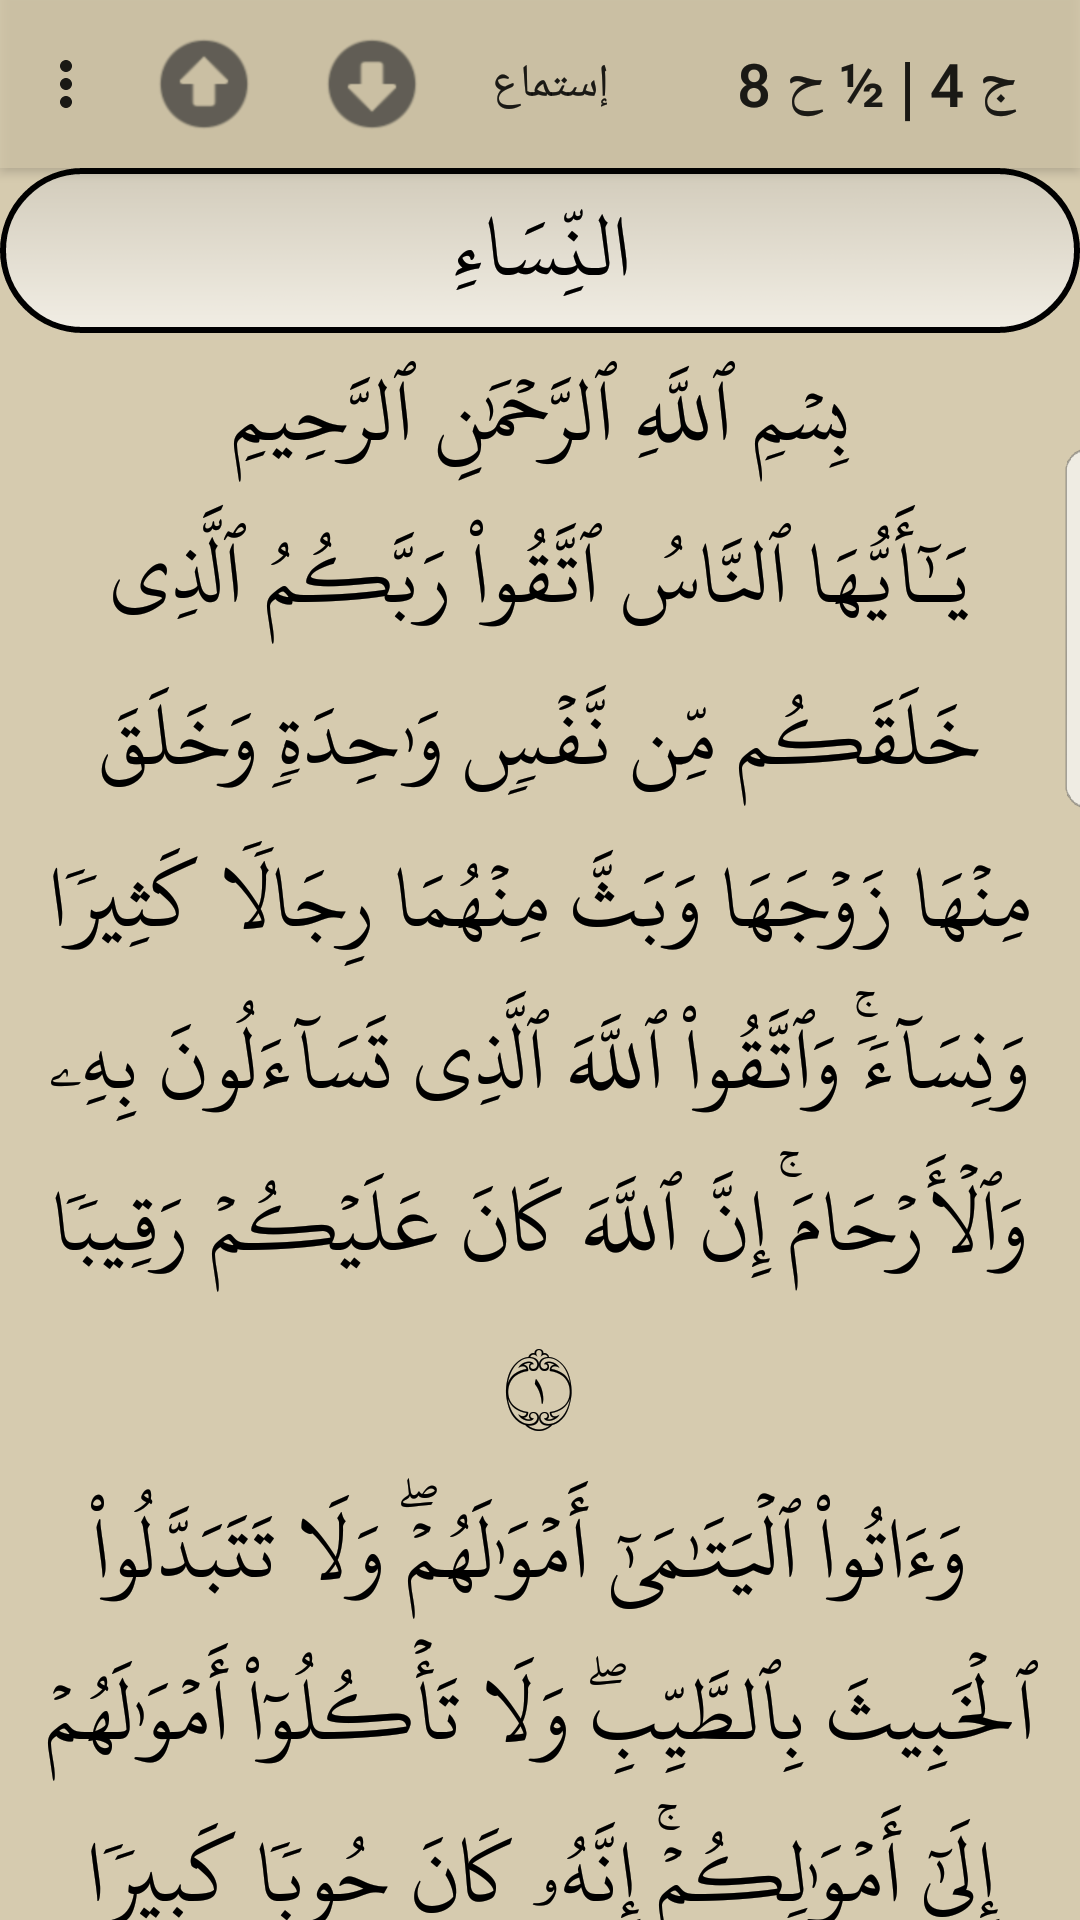 ج 4 | ½ ح 8 إستماع
النِّسَاءِ
بِسۡمِ ٱللَّهِ ٱلرَّحۡمَٰنِ ٱلرَّحِيمِ
يَـٰٓأَيُّهَا ٱلنَّاسُ ٱتَّقُواْ رَبَّكُمُ ٱلَّذِى
خَلَقَكُم مِّن نَّفۡسٍ وَٰحِدَةٍ وَخَلَقَ
مِنۡهَا زَوۡجَهَا وَبَثَّ مِنۡهُمَا رِجَالًا كَثِيرًا
وَنِسَآءًۚ وَٱتَّقُواْ ٱللَّهَ ٱلَّذِى تَسَآءَلُونَ بِهِۦ
وَٱلۡأَرۡحَامَۚ إِنَّ ٱللَّهَ كَانَ عَلَيۡكُمۡ رَقِيبًا
١
وَءَاتُواْ ٱلۡيَتَـٰمَىٰٓ أَمۡوَٰلَهُمۡۖ وَلَا تَتَبَدَّلُواْ
ٱلۡخَبِيثَ بِٱلطَّيِّبِۖ وَلَا تَأۡكُلُوٓاْ أَمۡوَٰلَهُمۡ
إِلَىٰٓ أَمۡوَٰلِكُمۡۚ إِنَّهُۥ كَانَ حُوبًا كَبِيرًا